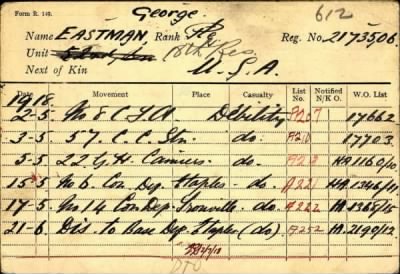 George. 612
Form R. 149.
Name EASTMAN Rank Pte Reg. No. 2173506.
Unit 18th Res.
Next of Kin U.S.A.
Date Movement Casualty List No. Notified N/K O. W.O. List
1918.
2-5. No 8 C.F.A. Debility A207 17662
3-5. 57. C.C. Stn. do. A210 17703.
5-5. 22 G.H. Camiers do. A212 HA1160/10
15-5. No 6. Con. Dep. Etaples do. A221 HA 1346/11
17-5. No 14 Con Dep. Trouville do. A222 HA 1365/15
21-6 Dis. to Base Dep. Etaples (do.) A252 HA 2190/12
PTO